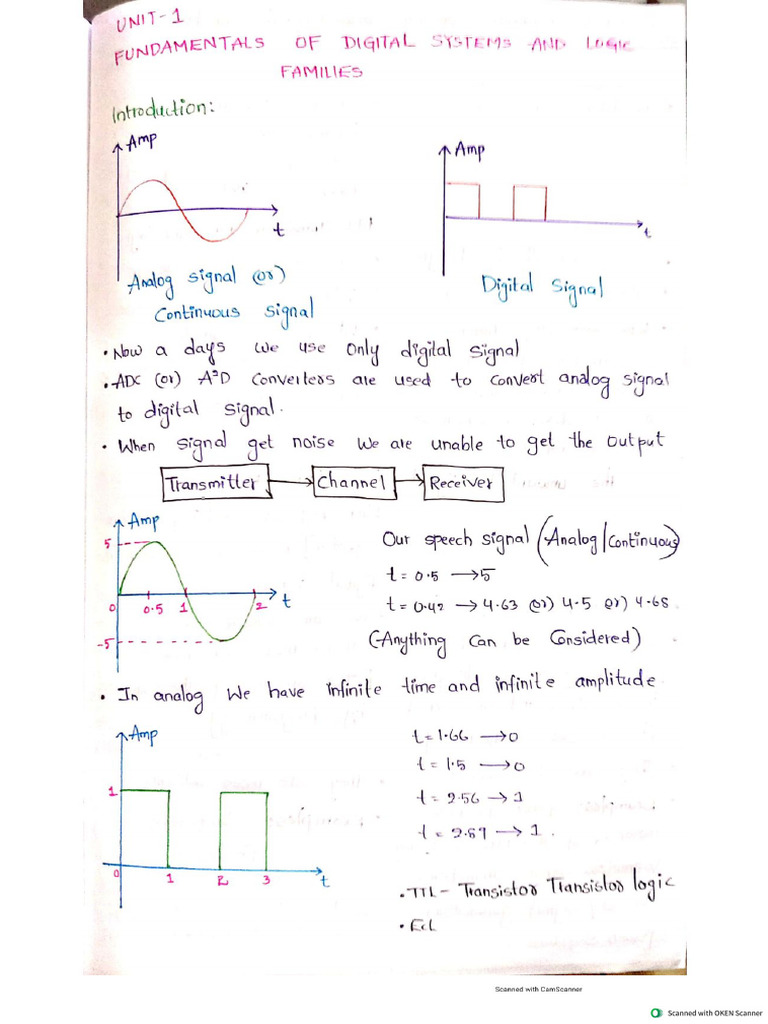 UNIT-1
FUNDAMENTALS OF DIGITAL SYSTEMS AND LOGIC
FAMILIES
Introduction:
Amp
t
Analog signal (or)
Continuous signal
Amp
t
Digital Signal
• Now a days we use only digital signal
• ADC (or) A²D Converters are used to convert analog signal
to digital signal.
• When signal get noise we are unable to get the output
Transmitter
Channel
Receiver
Amp
5
0
0.5
1
2
t
-5
Our speech signal (Analog/Continuous)
t = 0.5 → 5
t = 0.42 → 4.63 (or) 4.5 (or) 4.68
(Anything can be Considered)
• In analog we have infinite time and infinite amplitude
Amp
1
0
1
2
3
t
t = 1.66 → 0
t = 1.5 → 0
t = 2.56 → 1
t = 2.89 → 1.
• TTL - Transistor Transistor logic
• ECL
Scanned with CamScanner
Scanned with OKEN Scanner